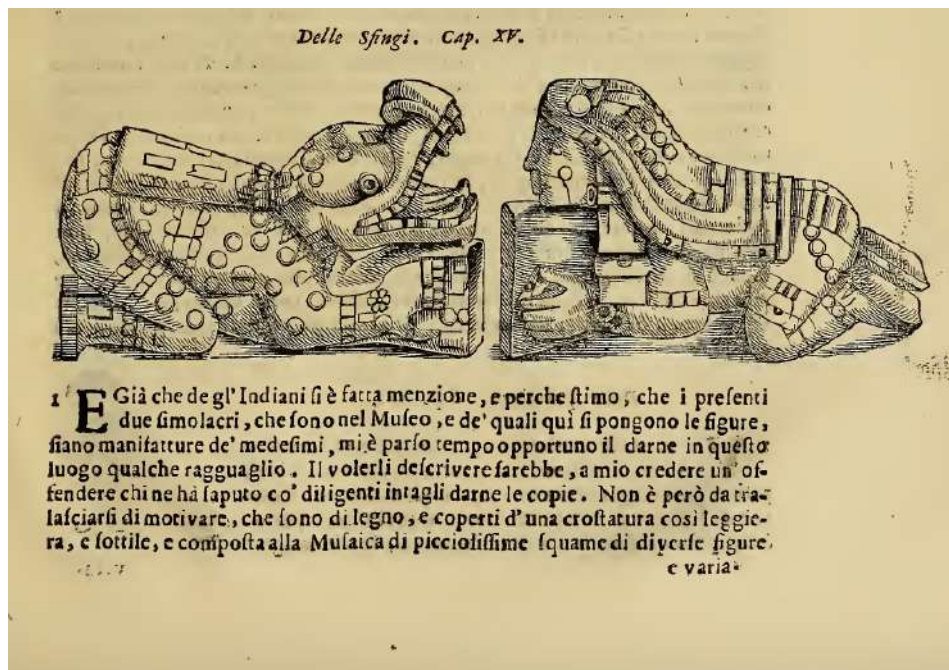 Delle Sfingi. Cap. XV.
1 E Già che de gl' Indiani si è fatta menzione, e perche stimo, che i presenti
due simolacri, che sono nel Museo, e de' quali quì si pongono le figure,
siano manifatture de' medesimi, mi è parso tempo opportuno il darne in questo
luogo qualche ragguaglio. Il volerli descrivere sarebbe, a mio credere un' of-
fendere chi ne hà saputo co' diligenti intagli darne le copie. Non è però da tra-
lasciarsi di motivare, che sono di legno, e coperti d'una crostatura così leggie-
ra, e sottile, e composta alla Musaica di picciolissime squame di diverse figure
e varia-